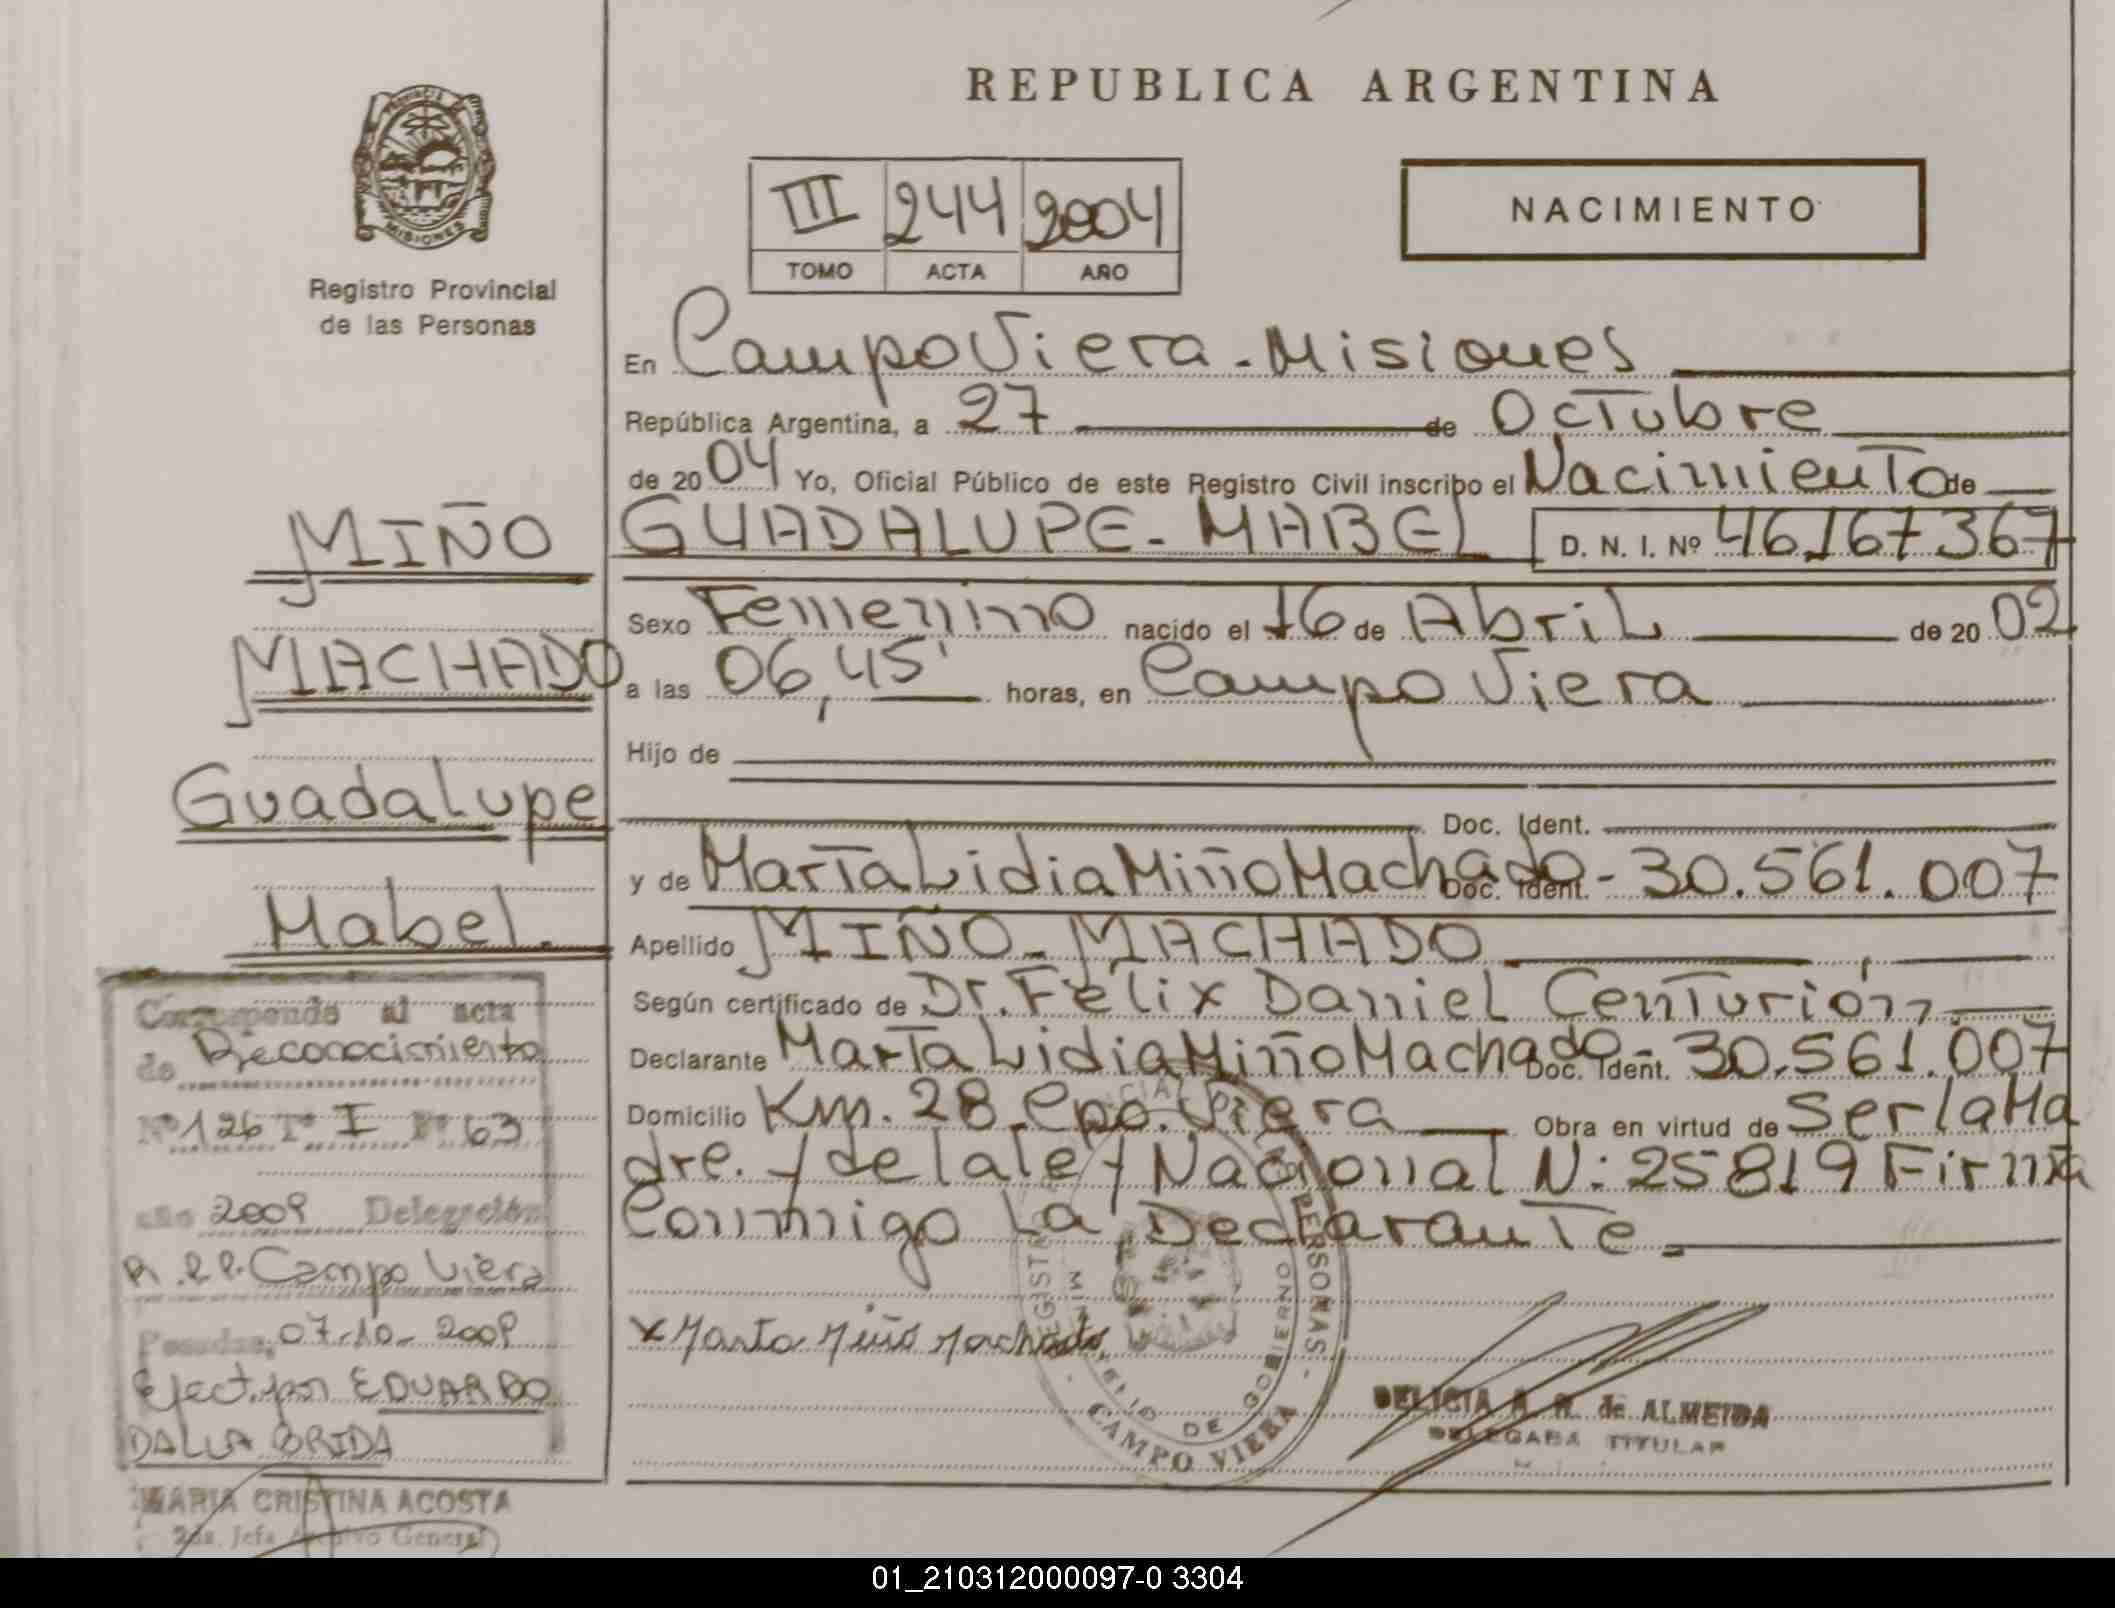 PROVINCIA
MISIONES
Registro Provincial
de las Personas
MIÑO
MACHADO
Guadalupe
Mabel.
Corresponde al acta
de Reconocimiento
Nº 126 Tº I Fº 63
año 2009 Delegación
R.P.P. Campo Viera
Posadas, 07-10-2009
Eject. por EDUARDO
DALLA BRIDA
MARIA CRISTINA ACOSTA
2da. Jefa Archivo General
REPUBLICA ARGENTINA
III 244 2004
TOMO ACTA AÑO
NACIMIENTO
En Campo Viera - Misiones
República Argentina, a 27 de Octubre
de 2004 Yo, Oficial Público de este Registro Civil inscribo el Nacimiento de
GUADALUPE - MABEL D. N. I. Nº 46.167.367
Sexo Femenino nacido el 16 de Abril de 2002
a las 06,45' horas, en Campo Viera
Hijo de
Doc. Ident.
y de Marta Lidia Miño Machado Doc. Ident. - 30.561.007
Apellido MIÑO - MACHADO
Según certificado de Dr. Félix Daniel Centurión,
Declarante Marta Lidia Miño Machado - Doc. Ident. 30.561.007
Domicilio Km. 28 Cpo. Viera Obra en virtud de Ser la Ma
dre. y de la ley Nacional N: 25819 Firma
Conmigo La Declarante.
x Marta Miño Machado
PERSONAS
GOBIERNO
CAMPO VIERA
DELICIA A. R. de ALMEIDA
DELEGADA TITULAR
01_210312000097-0 3304